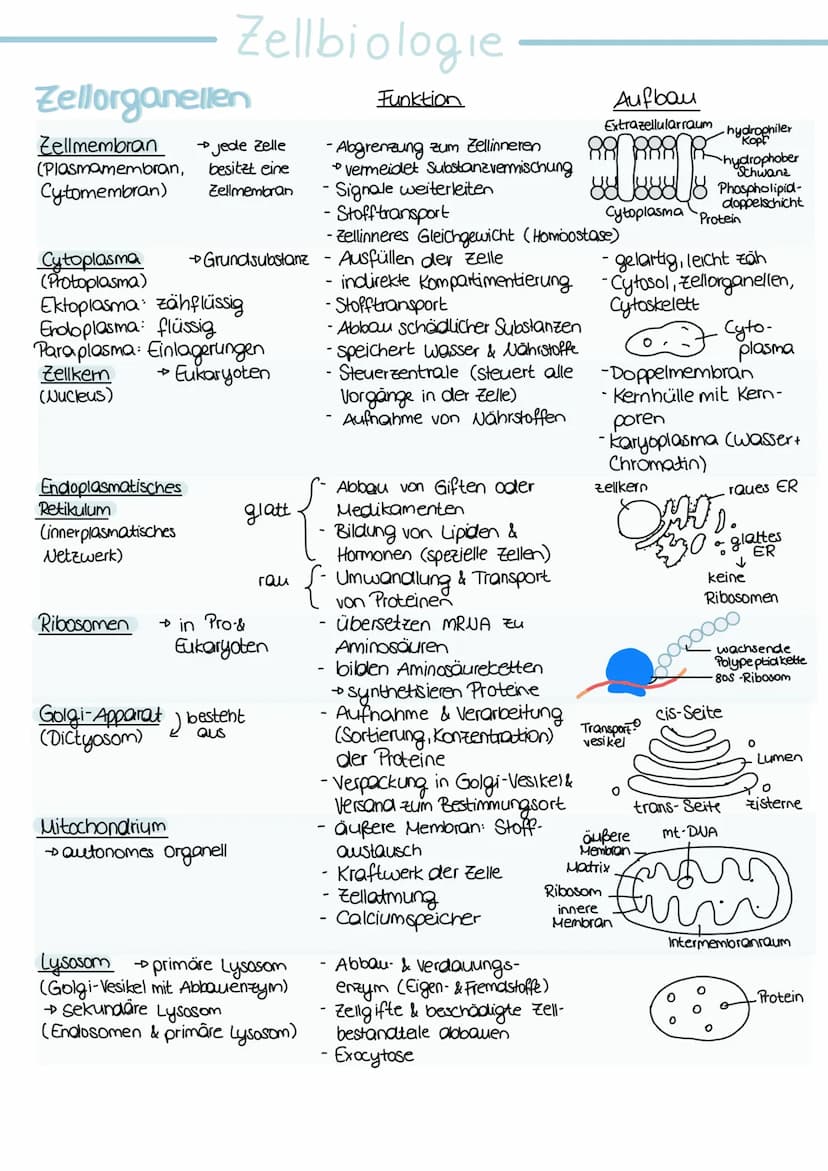 Zellbiologie
Zellorganellen
Funktion
Aufbau
Zellmembran → jede Zelle
(Plasmamembran, besitzt eine
Cytomembran) Zellmembran
- Abgrenzung zum Zellinneren
→ vermeidet Substanzvermischung
- Signale weiterleiten
- Stofftransport
- Zellinneres Gleichgewicht (Homöostase)
Extrazellularraum
hydrophiler
Kopf
hydrophober
Schwanz
Phospholipid-
doppelschicht
Cytoplasma
Protein
Cytoplasma → Grundsubstanz
(Protoplasma)
Ektoplasma: zähflüssig
Endoplasma: flüssig
Paraplasma: Einlagerungen
- Ausfüllen der Zelle
- indirekte Kompartimentierung
- Stofftransport
- Abbau schädlicher Substanzen
- speichert Wasser & Nährstoffe
- gelartig, leicht zäh
- Cytosol, Zellorganellen,
Cytoskelett
Cyto-
plasma
Zellkern → Eukaryoten
(Nucleus)
- Steuerzentrale (steuert alle
Vorgänge in der Zelle)
- Aufnahme von Nährstoffen
- Doppelmembran
- Kernhülle mit Kern-
poren
- Karyoplasma (Wasser+
Chromatin)
Endoplasmatisches
Retikulum
(innerplasmatisches
Netzwerk)
glatt
- Abbau von Giften oder
Medikamenten
- Bildung von Lipiden &
Hormonen (spezielle Zellen)
rau
- Umwandlung & Transport
von Proteinen
Zellkern
raues ER
glattes
ER
↓
keine
Ribosomen
Ribosomen → in Pro- &
Eukaryoten
- übersetzen mRNA zu
Aminosäuren
- bilden Aminosäureketten
→ synthetisieren Proteine
wachsende
Polypeptidkette
80S-Ribosom
Golgi-Apparat } besteht
(Dictyosom) aus
- Aufnahme & Verarbeitung
(Sortierung, Konzentration)
der Proteine
- Verpackung in Golgi-Vesikel &
Versand zum Bestimmungsort
cis-Seite
Transport-
vesikel
Lumen
trans-Seite
Zisterne
Mitochondrium
→ autonomes Organell
- äußere Membran: Stoff-
austausch
- Kraftwerk der Zelle
- Zellatmung
- Calciumspeicher
äußere
Membran
mt-DNA
Matrix
Ribosom
innere
Membran
Intermembranraum
Lysosom → primäre Lysosom
(Golgi-Vesikel mit Abbauenzym)
→ sekundäre Lysosom
(Endosomen & primäre Lysosom)
- Abbau- & Verdauungs-
enzym (Eigen- & Fremdstoffe)
- Zellgifte & beschädigte Zell-
bestandteile abbauen
- Exocytose
Protein